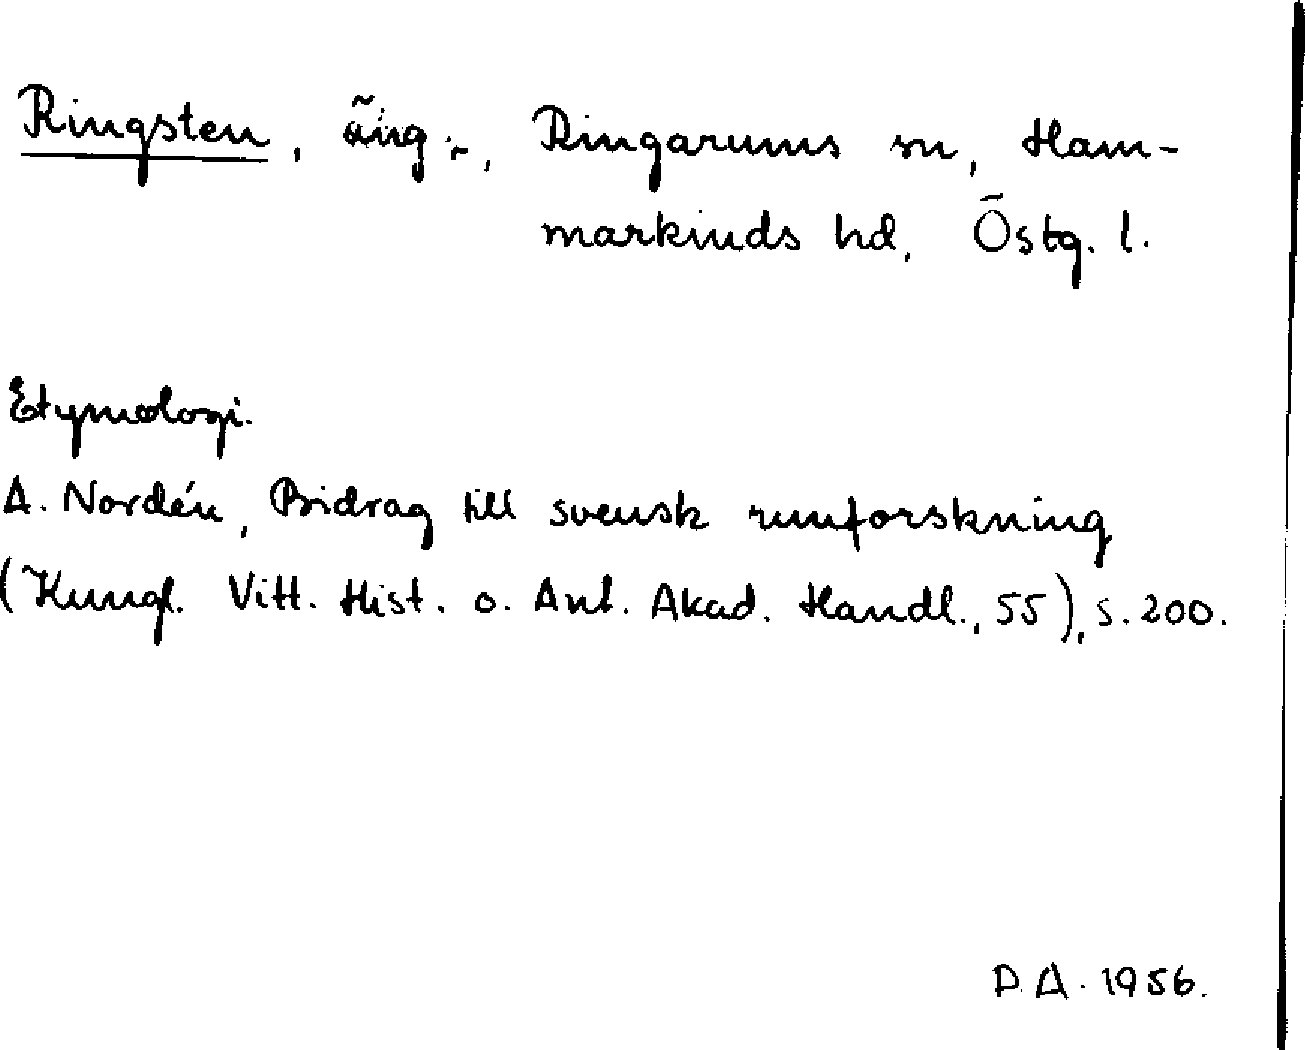 Ringsten, äng :-, Ringarums sn, Ham-
markinds hd, Östg. l.
Etymologi.
A. Nordén, Bidrag till svensk runforskning
(Kungl. Vitt. Hist. o. Ant. Akad. Handl., 55), s. 200.
D. A. 1956.